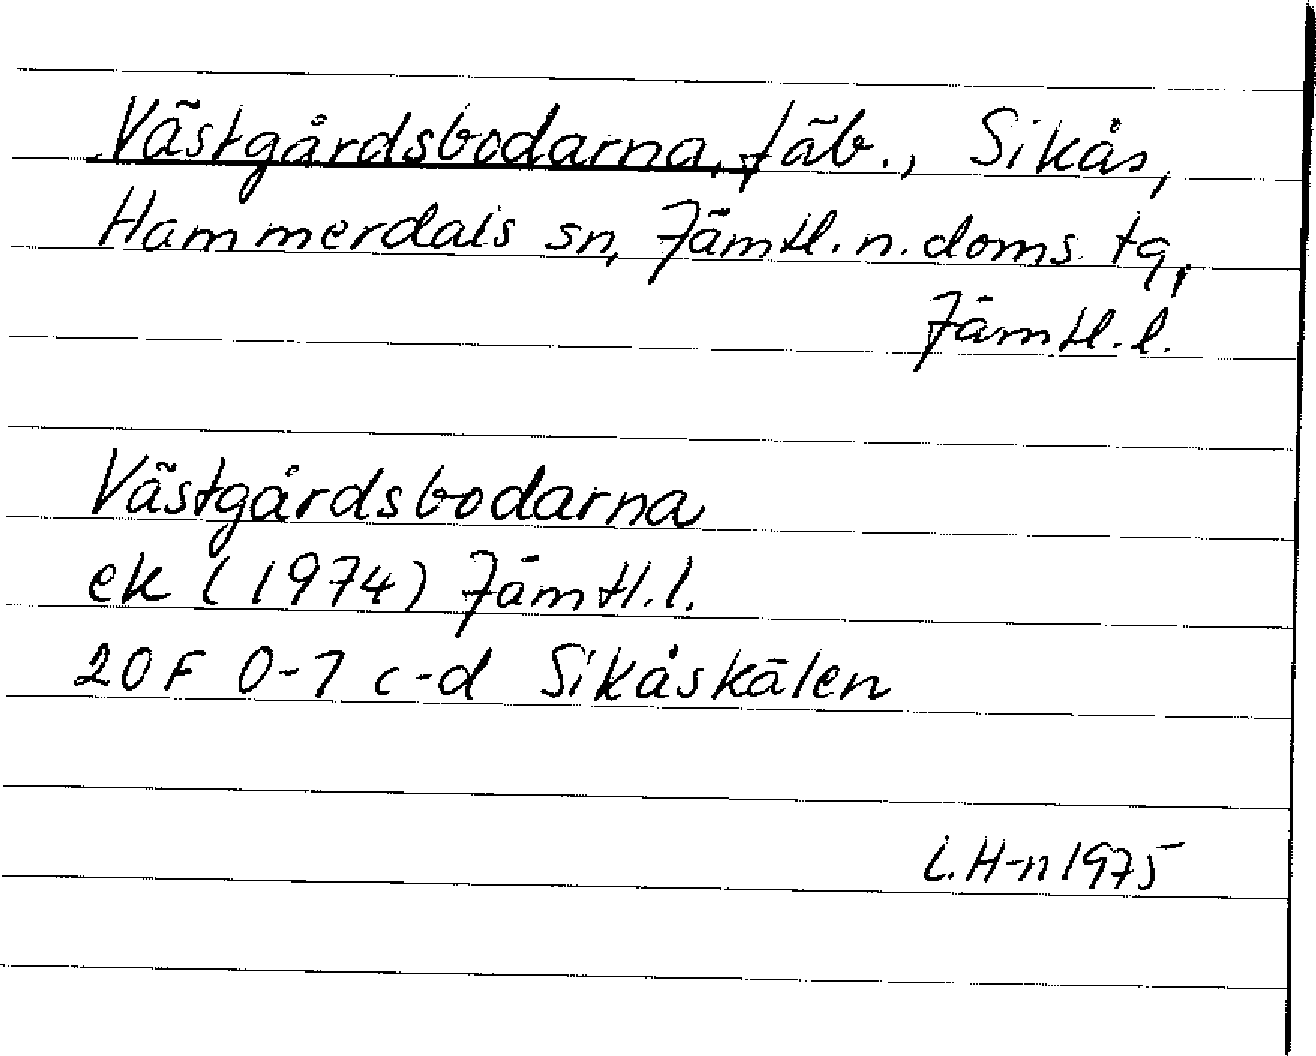 Västgårdsbodarna, fäb., Sikås,
Hammerdals sn, Jämtl. n. doms. tg,
Jämtl. l.
Västgårdsbodarna
ek (1974) Jämtl. l.
20F 0-1 c-d Sikåskälen
L. H-n 1975